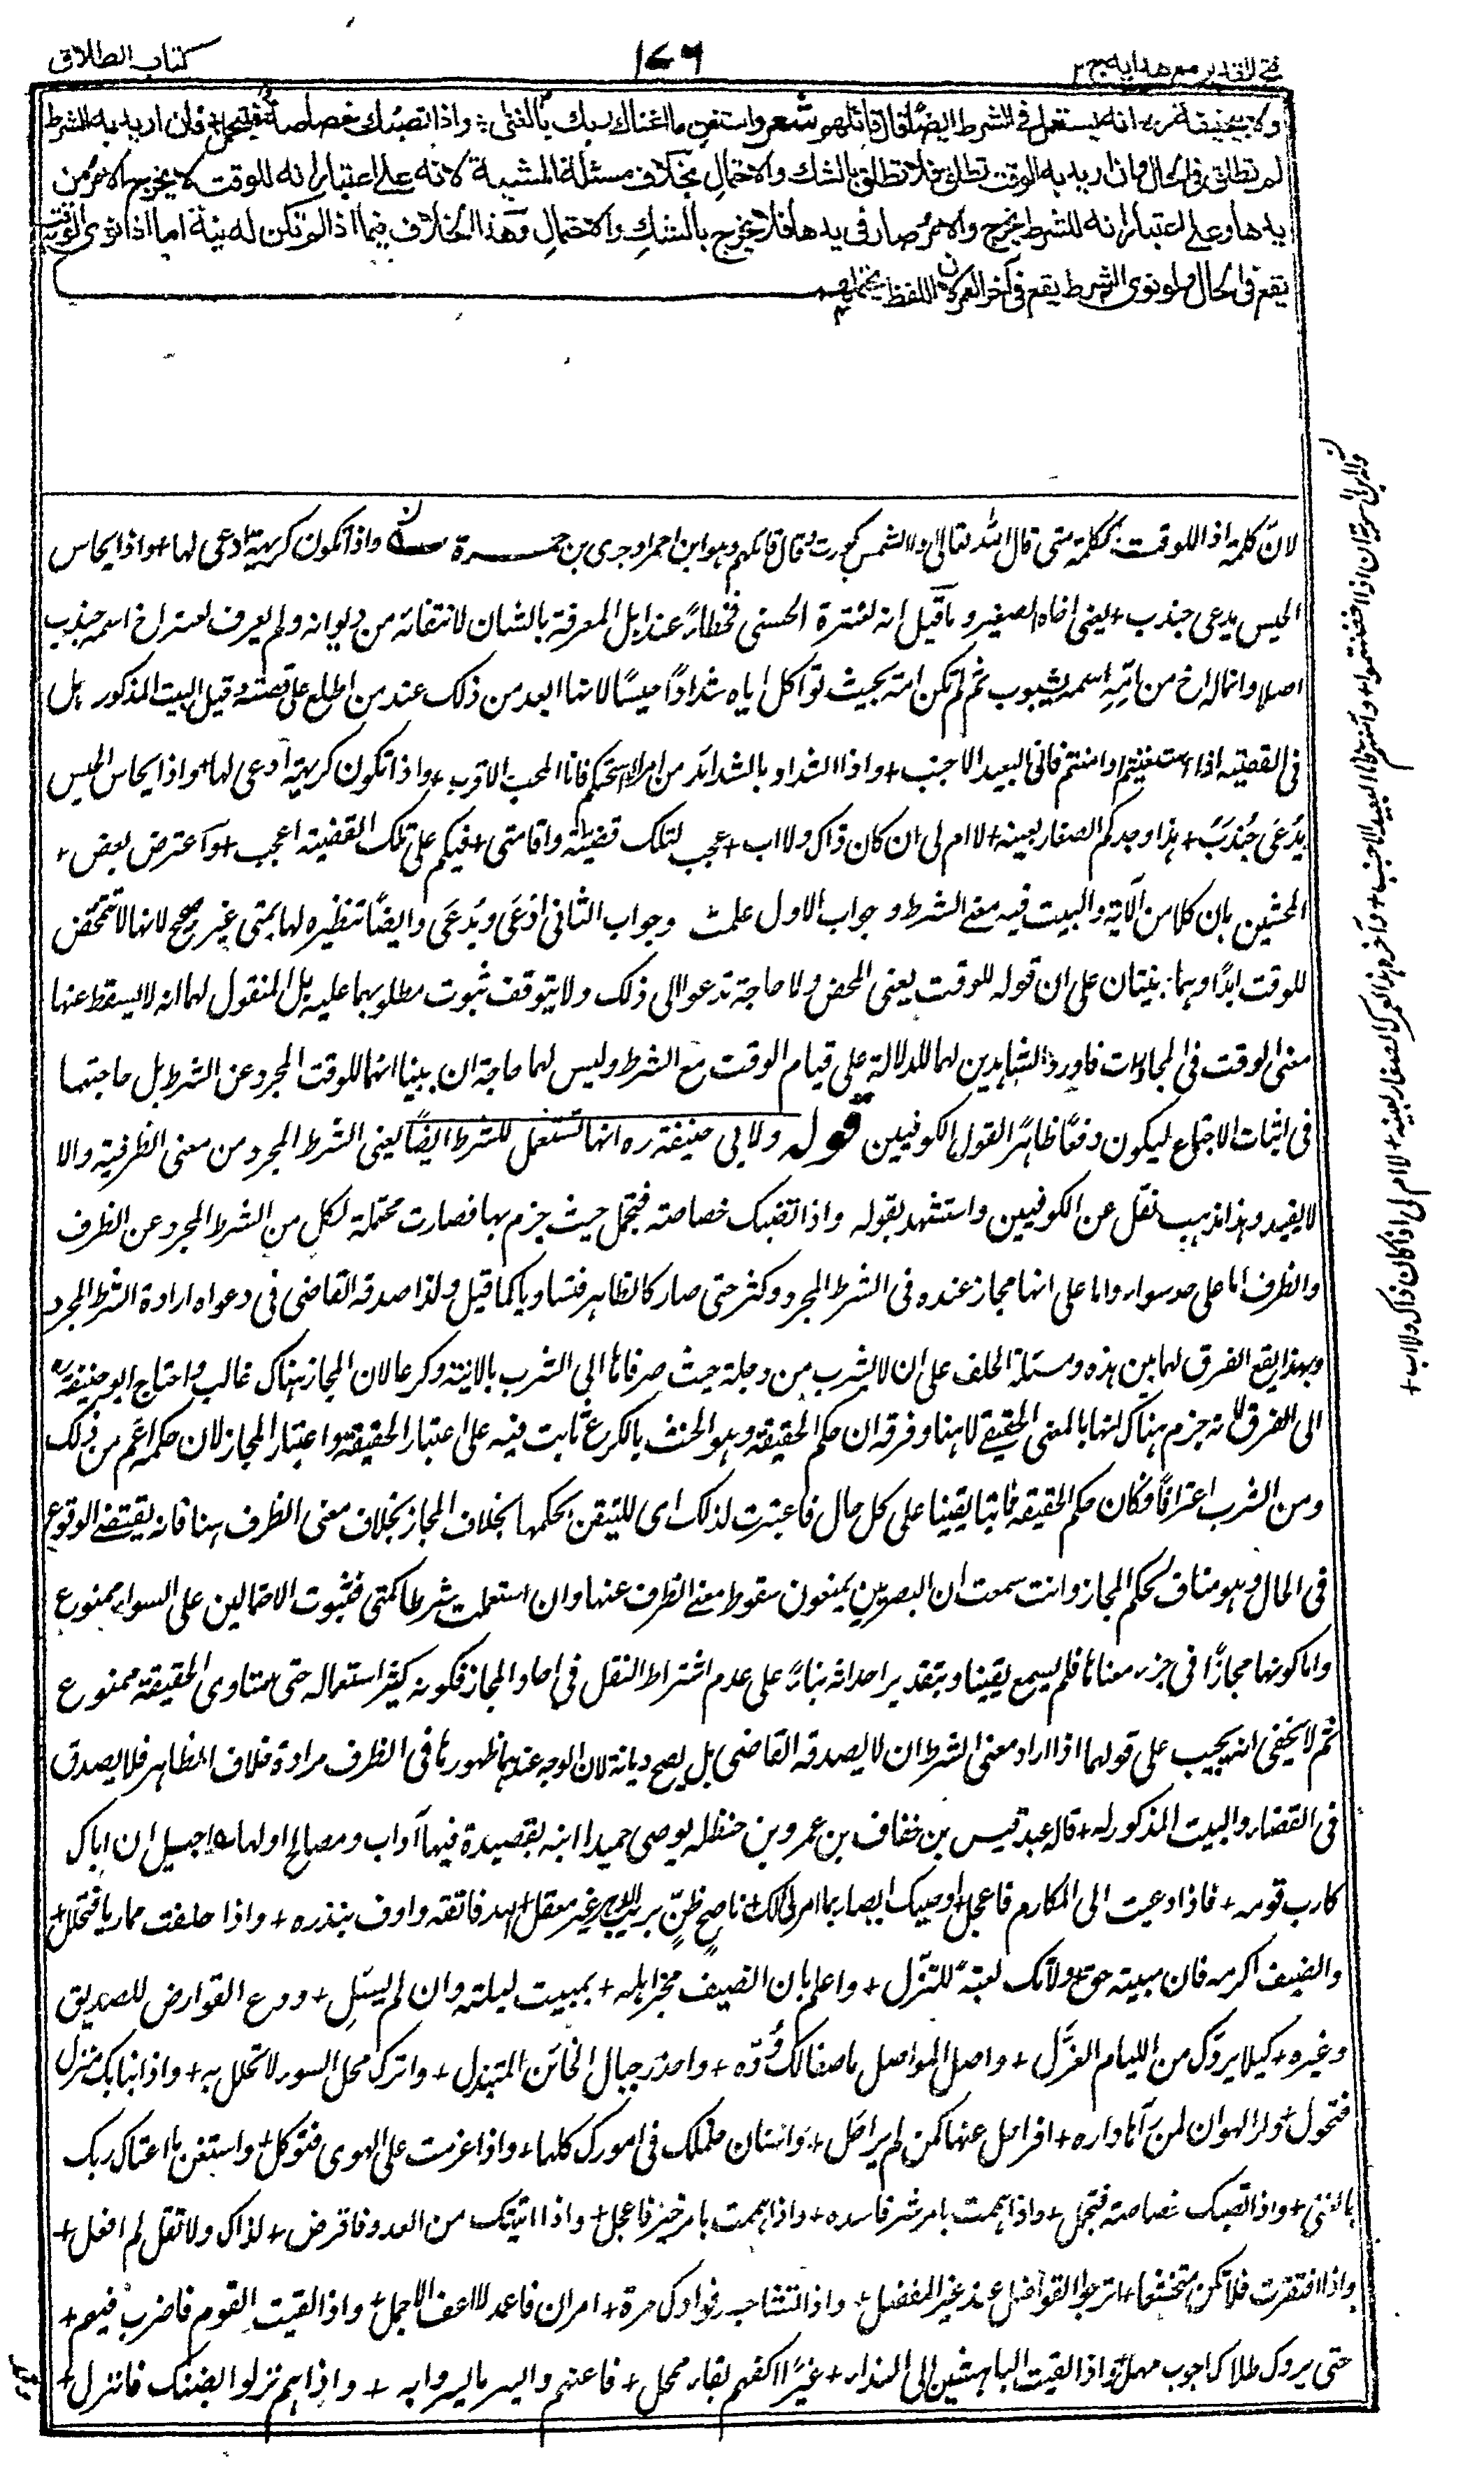 فتح القدير مع هدايه ج ٢
١٧٦
كتاب الطلاق
ولابي حنيفة انه يستعمل في الشرط ايضا قال قائلهم شعر واستغن ما اغناك ربك بالغنى + واذا تصبك خصاصة فتجمل + فان اريد به الشرط
لم تطلق في الحال وان اريد به الوقت تطلق فلا تطلق بالشك والاحتمال بخلاف مسئلة المشيية لانه على اعتبار انه للوقت لا يخرج الامر من
يدها وعلى اعتبار انه للشرط يخرج والامر صار في يدها فلا يخرج بالشك والاحتمال وهذا الخلاف فيما اذا لم تكن له نية اما اذا نوى الوقت
يقع في الحال ولو نوى الشرط يقع في آخر العمر لان اللفظ يحتملهما
لان كلمة اذا للوقت ككلمة متى قال الله تعالى اذا الشمس كورت وقال قائلهم وهو ابن احمر او جرى بن ضمرة واذا تكون كريهة ادعى لها + واذا يحاس
الحيس يدعى جندب + يعنى اخاه الصغير وما قيل انه لعنترة العبسى فخطاء عند اهل المعرفة بالشان لانتفائه من ديوانه ولم يعرف لعنتر اخ اسمه جندب
اصلا وانما له اخ من امه اسمه شيبوب ثم لم تكن امه بحيث تواكل اياه شدادا حيسا لانها ابعد من ذلك عند من اطلع على قصته وقيل البيت المذكور هل
في القضية اذا استغنيتم وامنتم فانى البعيد الاجنب + واذا الشدائد بالشدائد مرة فانا المحب الاقرب + واذا تكون كريهة ادعى لها + واذا يحاس الحيس
يدعى جندب + هذا وجدكم الصغار بعينه + لا ام لى ان كان ذاك ولا اب + عجب لتلك قضية واقامتى + فيكم على تلك القضية اعجب + واعترض بعض
المحشين بان كلا من الآية والبيت فيه معنى الشرط وجواب الاول علمت وجواب الثانى ادعى ويدعى وايضا تنظيره لها بمتى غير صحيح لانها لا تتمحض
للوقت ابدا وهما مبنيتان على ان قوله للوقت يعنى المحض ولا حاجة تدعو الى ذلك ولا يتوقف ثبوت مطلوبهما عليه بل المنقول لهما انه لا يسقط عنها
معنى الوقت في المجازات فاورد الشاهدين لهما للدلالة على قيام الوقت مع الشرط وليس لهما حاجة ان يبينا انها للوقت المجرد عن الشرط بل حاجتهما
في اثبات الاجتماع ليكون دفعا ظاهرا لقول الكوفيين قوله ولابي حنيفة ره انها تستعمل للشرط ايضا يعنى الشرط المجرد من معنى الظرفية والا
لا يفيد وهذا مذهب نقل عن الكوفيين واستشهد بقوله واذا تصبك خصاصة فتجمل حيث جزم بها فصارت محتملة لكل من الشرط المجرد عن الظرف
والظرف اما على حد سواء واما على انها مجاز عنده في الشرط المجرد وكثر حتى صار كالظاهر فتساويا كما قيل ولذا صدقه القاضى في دعواه ارادة الشرط المجرد
وبهذا يقع الفرق لهما بين هذه ومسئلة الحلف على ان لا يشرب من دجلة حيث صرفاها الى الشرب بالانية وكرعا لان المجاز هناك غالب واحتاج ابو حنيفة
الى الفرق لانه جزم هناك انها بالمعنى الحقيقى لا هنا وفرقه ان حكم الحقيقة وهو الحنث بالكرع ثابت فيه على اعتبار الحقيقة واعتبار المجاز لان حكمه اعم من ذلك
ومن الشرب اعترافا فكان حكم الحقيقة ثابتا يقينا على كل حال فاعتبرت لذلك اى للتيقن بحكمها بخلاف المجاز بخلاف معنى الظرف هنا فانه يقتضى الوقوع
في الحال وهو مناف لحكم المجاز وانت سمعت ان البصريين يمنعون سقوط معنى الظرف عنها وان استعملت شرطا كمتى فثبوت الاحتمالين على السواء ممنوع
واما كونها مجازا في جزء معناها فلم يسمع يقينا وبتقدير احداثه بناء على عدم اشتراط النقل في احاد المجاز فكونه كثر استعماله حتى ساوى الحقيقة ممنوع
ثم لا يخفى انه يجب على قولهما اذا اراد معنى الشرط ان لا يصدقه القاضى بل يصح ديانة لان الوجه عندهما ظهورها في الظرف مرادة خلاف الظاهر فلا يصدق
في القضاء والبيت المذكور له + قاله عبد قيس بن خفاف بن عمرو بن حنظلة يوصى جميلا ابنه بقصيدة فيها آداب ومصالح اولها اجبيل ان اباك
كارب قومه + فاذا دعيت الى المكارم فاعجل + اوصيك ايصاء امرئ لك + ناصح طبن بريب الدهر غير مغفل + الله فاتقه واوف بنذره + واذا حلفت مماريا فتحلل +
والضيف اكرمه فان مبيته حق + ولا تك لعنة للنزل + واعلم بان الضيف مخبر اهله + بمبيت ليلته وان لم يسئل + ودع القوارض للصديق
وغيره + كيلا يروك من اللئام العزل + وصل المواصل ما صفا لك وده + واحذر حبال الخائن المتبذل + واترك محل السوء لا تحلل به + واذا نبا بك منزل
فتحول + دار الهوان لمن رآها داره + افراحل عنها كمن لم يرحل + واستان حلمك في امورك كلها + واذا عزمت على الهوى فتوكل + واستغن ما اغناك ربك
بالغنى + واذا تصبك خصاصة فتجمل + واذا هممت بامر شر فاتئده + واذا هممت بامر خير فاعجل + واذا اتتك من العدو قوارض + لذاك ولا تقل لم افعل +
واذا افتقرت فلا تكن متخشعا + ترجو الفواضل عند غير المفضل + واذا تشاجر في فؤادك مرة + امران فاعمد للاعف الاجمل + واذا لقيت القوم فاضرب فيهم +
حتى يروك طلاء اجرب مهمل + واذا لقيت الباهشين الى الندى + غبرا اكفهم بقاع ممحل + فاعنهم وايسر بما يسروا به + واذا هم نزلوا بضنك فانزل +